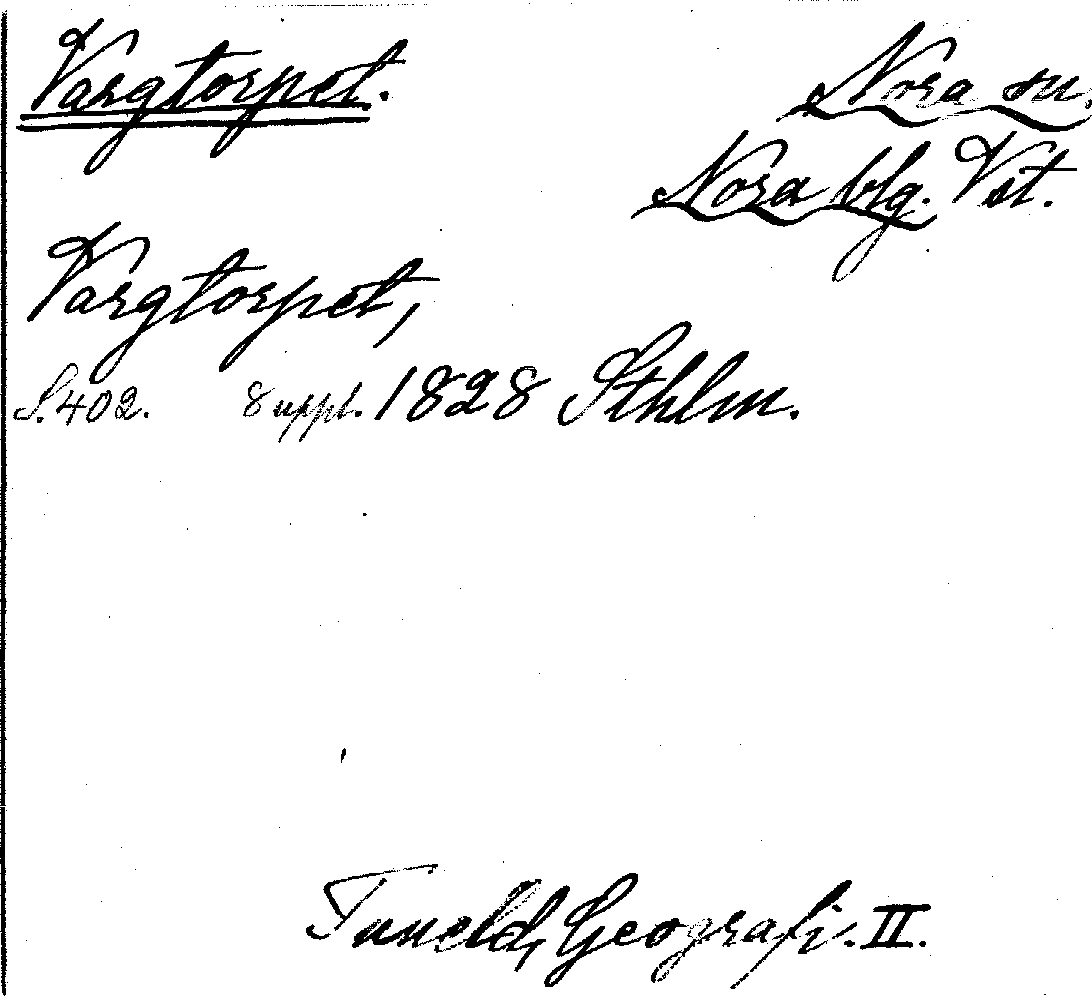 Vargtorpet.
Nora sn.
Nora blg. Vst.
Vargtorpet,
S. 402. 8 uppl. 1828 Sthlm.
Tuneld, Geografi. II.